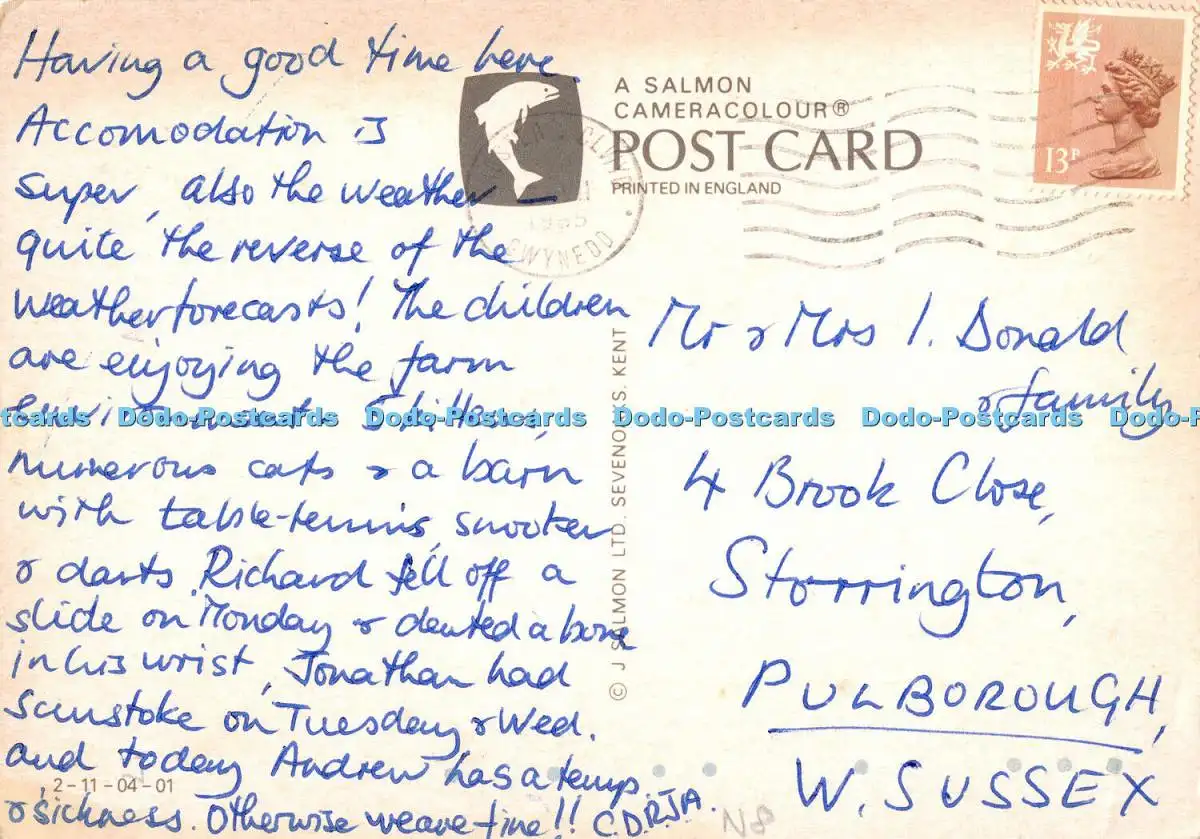 Having a good time here.
Accomodation is
super, also the weather –
quite the reverse of the
weatherforecasts! The children
are enjoying the farm
environment. 5 kittens,
numerous cats & a barn
with table-tennis, snooker
& darts. Richard fell off a
slide on Monday & dented a bone
in his wrist, Jonathan had
sunstoke on Tuesday & Wed.
and today Andrew has a temp.
& sickness. Otherwise we are fine!! C.D.R.J.A.
2-11-04-01
A SALMON
CAMERACOLOUR®
POST CARD
PRINTED IN ENGLAND
1985
GWYNEDD
13P
© J SALMON LTD., SEVENOAKS. KENT
Mr & Mrs I. Donald
& family
4 Brook Close,
Storrington,
PULBOROUGH,
W. SUSSEX
N8
Dodo-Postcards Dodo-Postcards Dodo-Postcards Dodo-Postcards